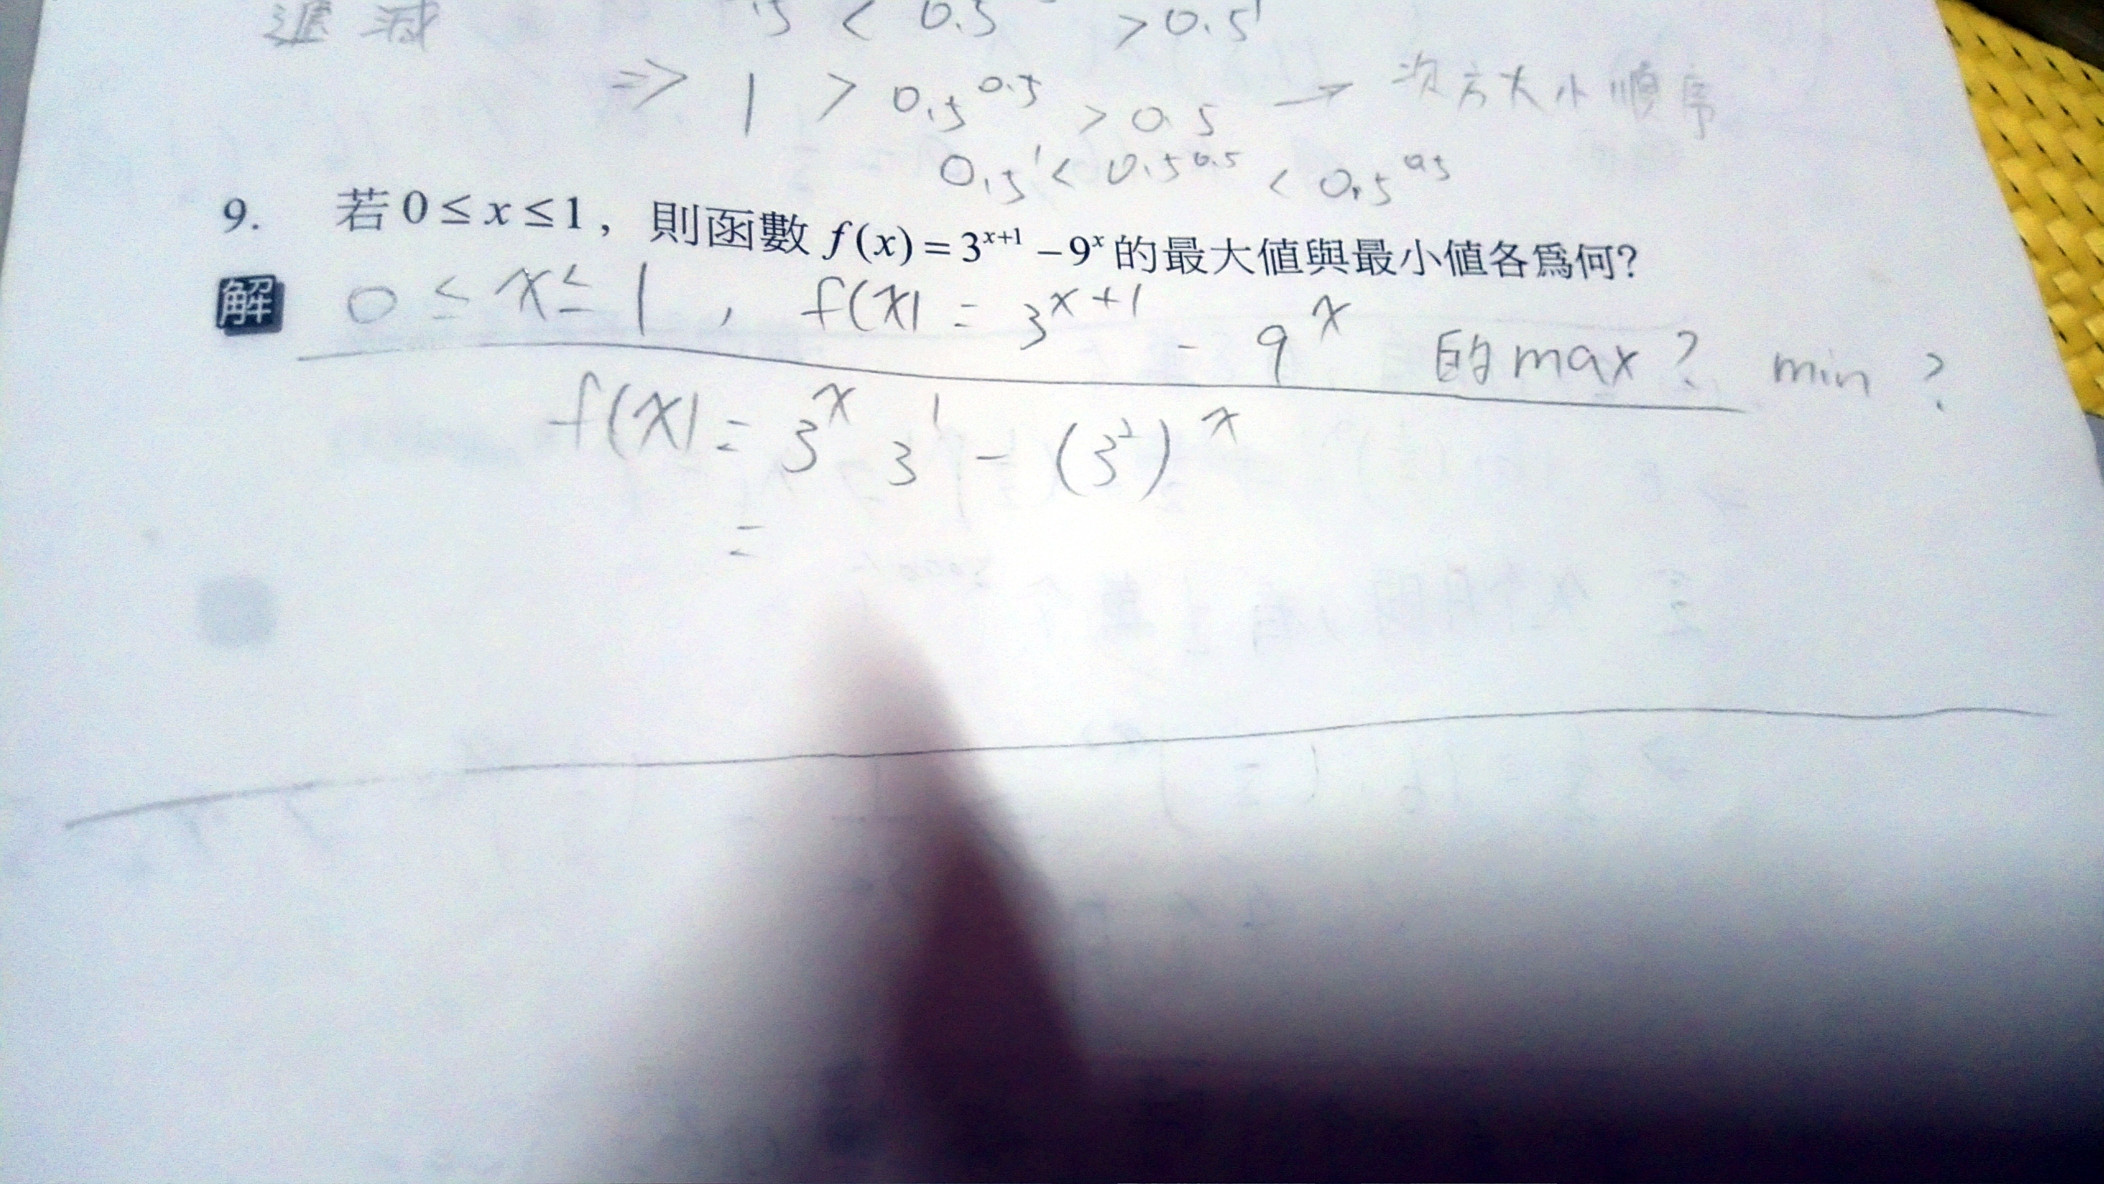 遞減 < 0.5 > 0.5¹
⇒ 1 > 0.5^0.5 > 0.5 → 次方大小順序
0.5¹ < 0.5^0.5 < 0.5^0.5
9. 若 0 ≤ x ≤ 1，則函數 f(x) = 3^{x+1} − 9^x 的最大值與最小值各為何?
解 0 ≤ x ≤ 1 , f(x) = 3^{x+1} - 9^x 的 max ? min ?
f(x) = 3^x 3^1 - (3^2)^x
=